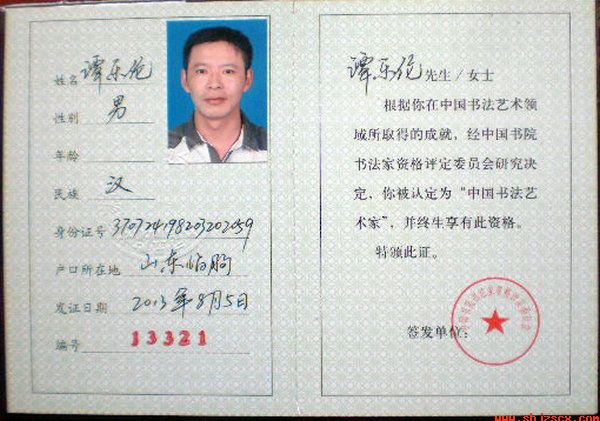 姓名 谭乐伦
性别 男
年龄
民族 汉
身份证号 370724198203202059
户口所在地 山东临朐
发证日期 2013年8月5日
编号 13321
谭乐伦 先生／女士
根据你在中国书法艺术领
域所取得的成就，经中国书院
书法家资格评定委员会研究决
定，你被认定为“中国书法艺
术家”，并终生享有此资格。
特颁此证。
签发单位：
www.shjzscx.com